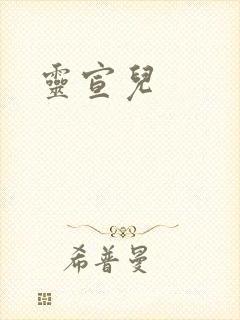 靈宣兒
希普曼